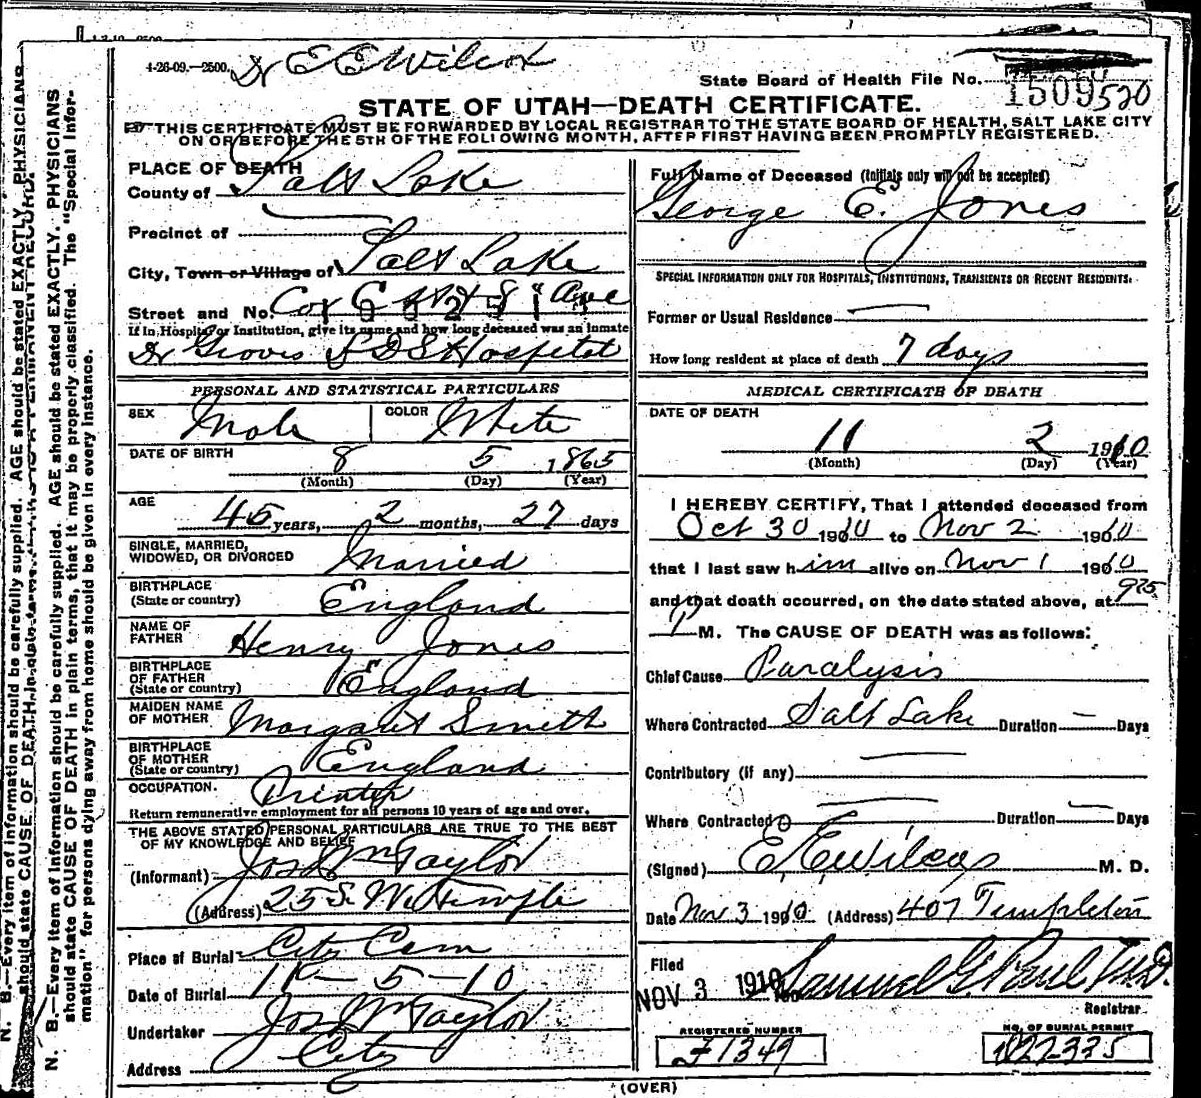 4-26-09.—2500. Dr E E Wilcox
State Board of Health File No. 1509 520
STATE OF UTAH—DEATH CERTIFICATE.
THIS CERTIFICATE MUST BE FORWARDED BY LOCAL REGISTRAR TO THE STATE BOARD OF HEALTH, SALT LAKE CITY
ON OR BEFORE THE 5TH OF THE FOLLOWING MONTH, AFTER FIRST HAVING BEEN PROMPTLY REGISTERED.
PLACE OF DEATH
County of Salt Lake
Precinct of
City, Town or Village of Salt Lake
Street and No. Cor C 8 Ave
If in Hospital or Institution, give its name and how long deceased was an inmate
Dr Groves L D S Hospital
PERSONAL AND STATISTICAL PARTICULARS
SEX Male COLOR White
DATE OF BIRTH 8 5 1865
(Month) (Day) (Year)
AGE 45 years, 2 months, 27 days
SINGLE, MARRIED,
WIDOWED, OR DIVORCED Married
BIRTHPLACE
(State or country) England
NAME OF
FATHER Henry Jones
BIRTHPLACE
OF FATHER
(State or country) England
MAIDEN NAME
OF MOTHER Margaret Smith
BIRTHPLACE
OF MOTHER
(State or country) England
OCCUPATION. Printer
Return remunerative employment for all persons 10 years of age and over.
THE ABOVE STATED PERSONAL PARTICULARS ARE TRUE TO THE BEST
OF MY KNOWLEDGE AND BELIEF
(Informant) Jos Wm Taylor
(Address) 25 S. W. Temple
Place of Burial City Cem
Date of Burial 11 - 5 - 10
Undertaker Jos Wm Taylor
Address City
Full Name of Deceased (Initials only will not be accepted)
George E. Jones
SPECIAL INFORMATION ONLY FOR HOSPITALS, INSTITUTIONS, TRANSIENTS OR RECENT RESIDENTS:
Former or Usual Residence —
How long resident at place of death 7 days
MEDICAL CERTIFICATE OF DEATH
DATE OF DEATH
11 2 1910
(Month) (Day) (Year)
I HEREBY CERTIFY, That I attended deceased from
Oct 30 1910 to Nov 2 1910
that I last saw him alive on Nov 1 1910
and that death occurred, on the date stated above, at 925
P M. The CAUSE OF DEATH was as follows:
Chief Cause Paralysis
Where Contracted Salt Lake Duration — Days
Contributory (if any) —
Where Contracted — Duration — Days
(Signed) E. E. Wilcox M. D.
Date Nov 3 1910 (Address) 407 Templeton
Filed
NOV 3 1910 Samuel G. Paul M.D.
Registrar
REGISTERED NUMBER NO. OF BURIAL PERMIT
F1349
(OVER)
N. B.—Every item of information should be carefully supplied. AGE should be stated EXACTLY. PHYSICIANS
should state CAUSE OF DEATH in plain terms, that it may be properly classified. The "Special Infor-
mation" for persons dying away from home should be given in every instance.
N. B.—Every item of information should be carefully supplied. AGE should be stated EXACTLY. PHYSICIANS
should state CAUSE OF DEATH